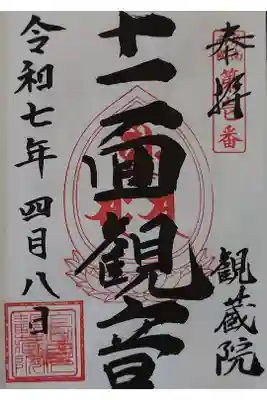 奉拝
第壱番
十一面観音
観蔵院
令和七年 四月八日